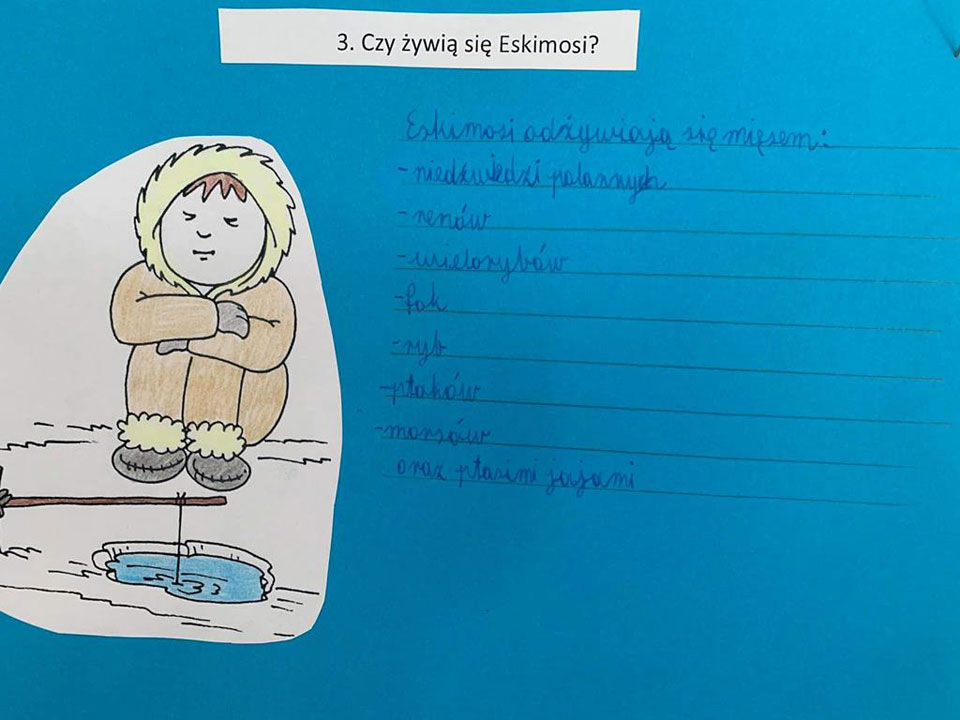 3. Czy żywią się Eskimosi?
Eskimosi odżywiają się mięsem:
- niedźwiedzi polarnych
- renów
- wielorybów
- fok
- ryb
- ptaków
- morsów
oraz ptasimi jajami